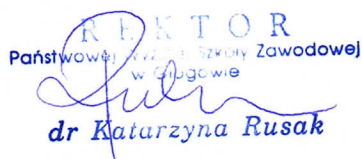 REKTOR
Państwowej Wyższej Szkoły Zawodowej
w Głogowie
dr Katarzyna Rusak